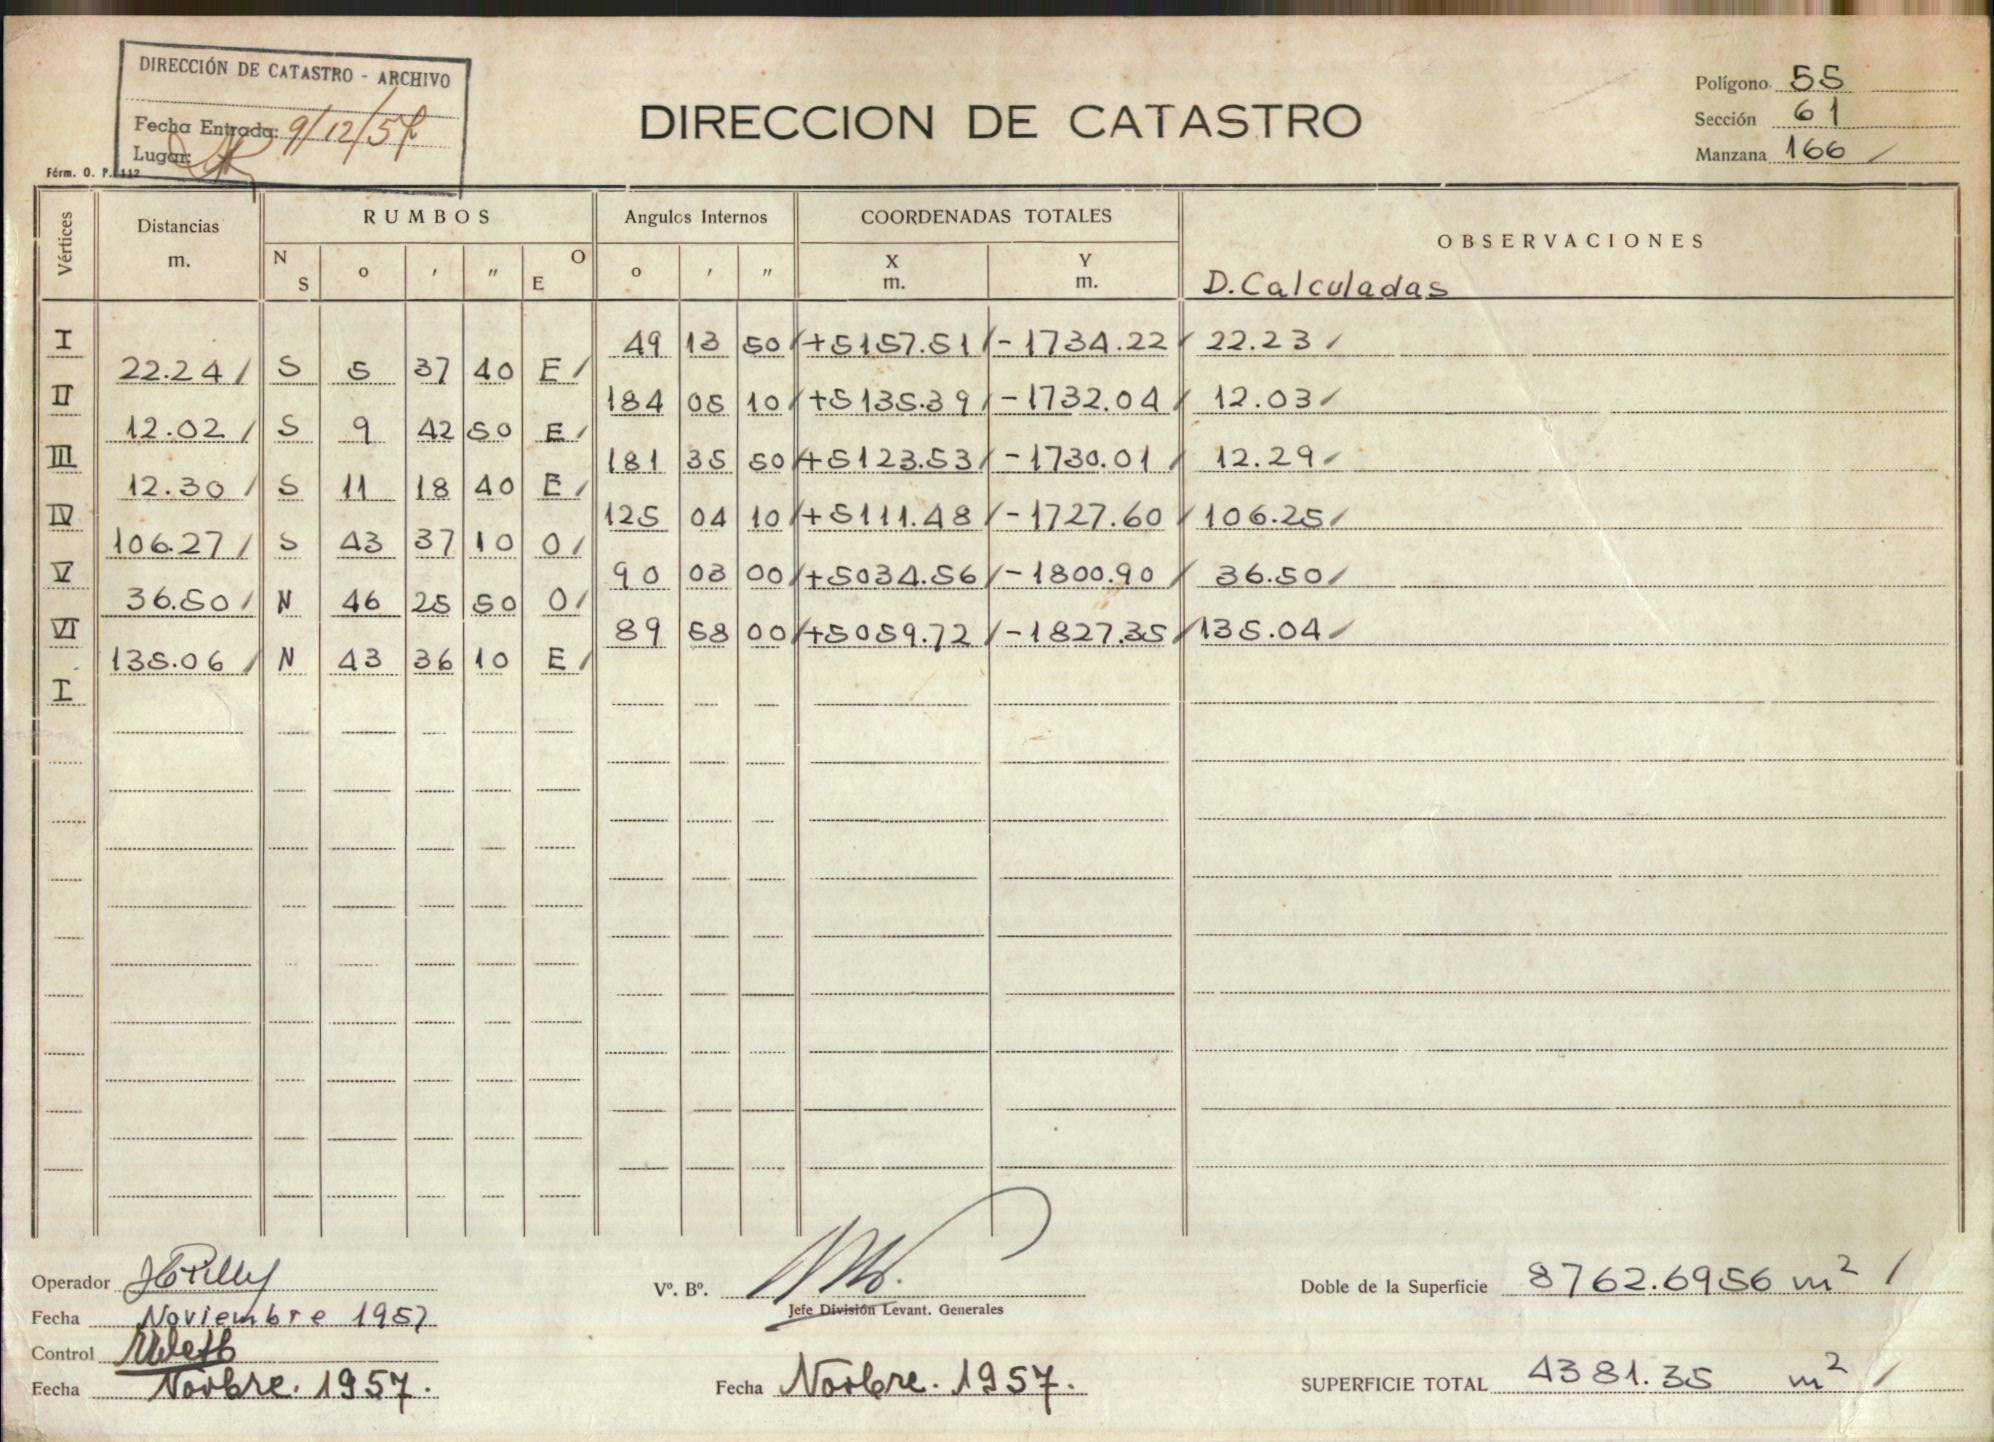 DIRECCIÓN DE CATASTRO - ARCHIVO
Fecha Entrada: 9/12/57
Lugar:
Fórm. O. P. 112
DIRECCION DE CATASTRO
Polígono 55
Sección 61
Manzana 166
Vértices Distancias m. RUMBOS Angulos Internos COORDENADAS TOTALES OBSERVACIONES
N S o ' " O E o ' " X m. Y m. D. Calculadas
I 49 13 50 +5157.51 -1734.22 22.23
22.24 S 5 37 40 E
II 184 05 10 +5135.39 -1732.04 12.03
12.02 S 9 42 50 E
III 181 35 50 +5123.53 -1730.01 12.29
12.30 S 11 18 40 E
IV 125 04 10 +5111.48 -1727.60 106.25
106.27 S 43 37 10 O
V 90 03 00 +5034.56 -1800.90 36.50
36.50 N 46 25 50 O
VI 89 58 00 +5059.72 -1827.35 135.04
135.06 N 43 36 10 E
I
Operador
Fecha Noviembre 1957
Control
Fecha Novbre. 1957.
Vº. Bº.
Jefe División Levant. Generales
Fecha Novbre. 1957.
Doble de la Superficie 8762.6956 m²
SUPERFICIE TOTAL 4381.35 m²